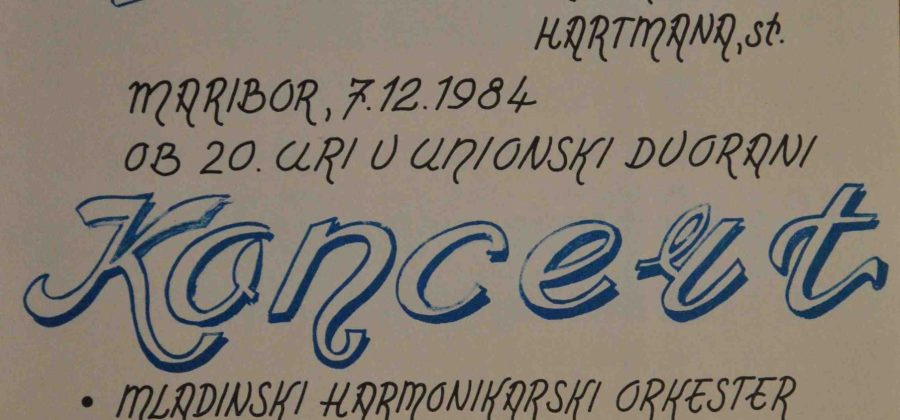 HARTMANA, st.
MARIBOR, 7.12.1984
OB 20. URI V UNIONSKI DVORANI
Koncert
• MLADINSKI HARMONIKARSKI ORKESTER